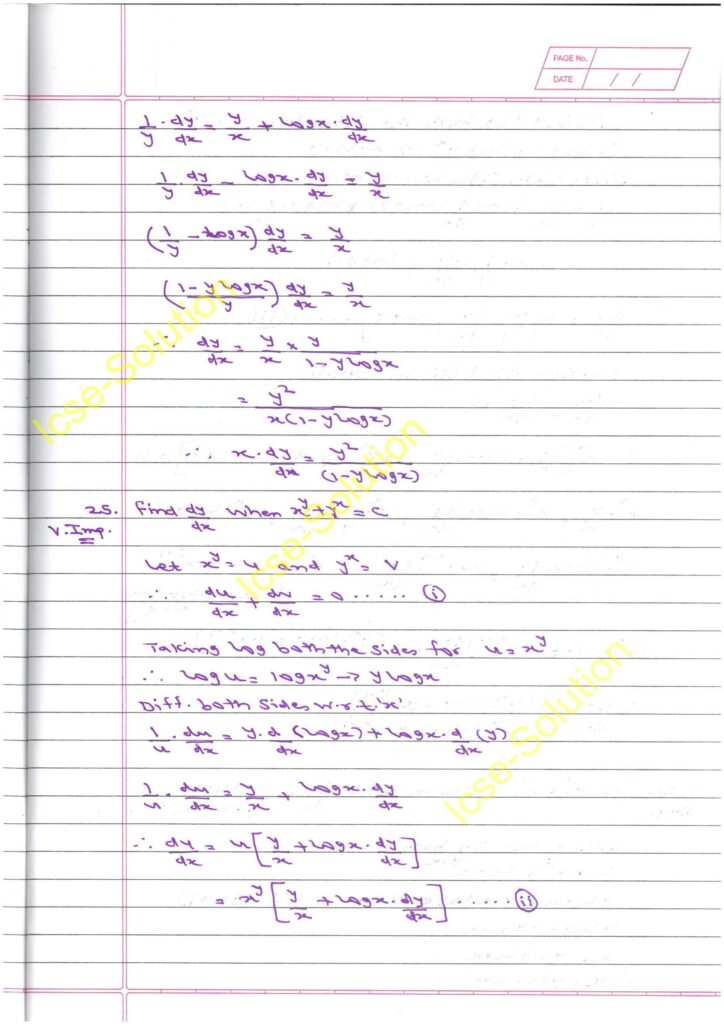 PAGE No.
DATE / /
1/y · dy/dx = y/x + logx · dy/dx
1/y · dy/dx - logx · dy/dx = y/x
(1/y - logx) dy/dx = y/x
(1 - y logx / y) dy/dx = y/x
∴ dy/dx = y/x × y/1 - y logx
= y²/x(1 - y logx)
∴ x · dy/dx = y²/(1 - y logx)
25. Find dy/dx when x^y + y^x = c
V. Imp.
Let x^y = u and y^x = v
∴ du/dx + dv/dx = 0 ..... (i)
Taking log both the sides for u = x^y
∴ log u = log x^y → y logx
Diff. both sides w.r.t. 'x'
1/u · du/dx = y · d/dx (logx) + logx · d/dx (y)
1/u · du/dx = y/x + logx · dy/dx
∴ du/dx = u [y/x + logx · dy/dx]
= x^y [y/x + logx · dy/dx] ..... (ii)
Icse-Solution
Icse-Solution
Icse-Solution